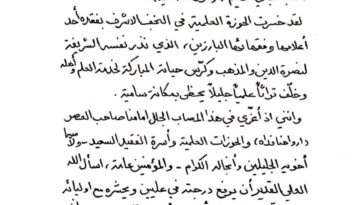 لقد خسرت الحوزة العلمية في النجف الاشرف بفقده أحد
أعلامها وفقهائها البارزين، الذي نذر نفسه الشريفة
لنصرة الدين والمذهب وكرّس حياته المباركة لخدمة العلم وأهله
وخلّف تراثاً علمياً جليلاً يحظى بمكانة سامية.
وإنني إذ أعزّي في هذا المصاب الجلل إمامنا صاحب العصر
(أرواحنا فداه) والحوزات العلمية وأسرة الفقيد السعيد - ولا سيما
أخويه الجليلين وأنجاله الكرام - والمؤمنين عامة، أسأل الله
العلي القدير أن يرفع درجته في عليين ويحشره مع أوليائه